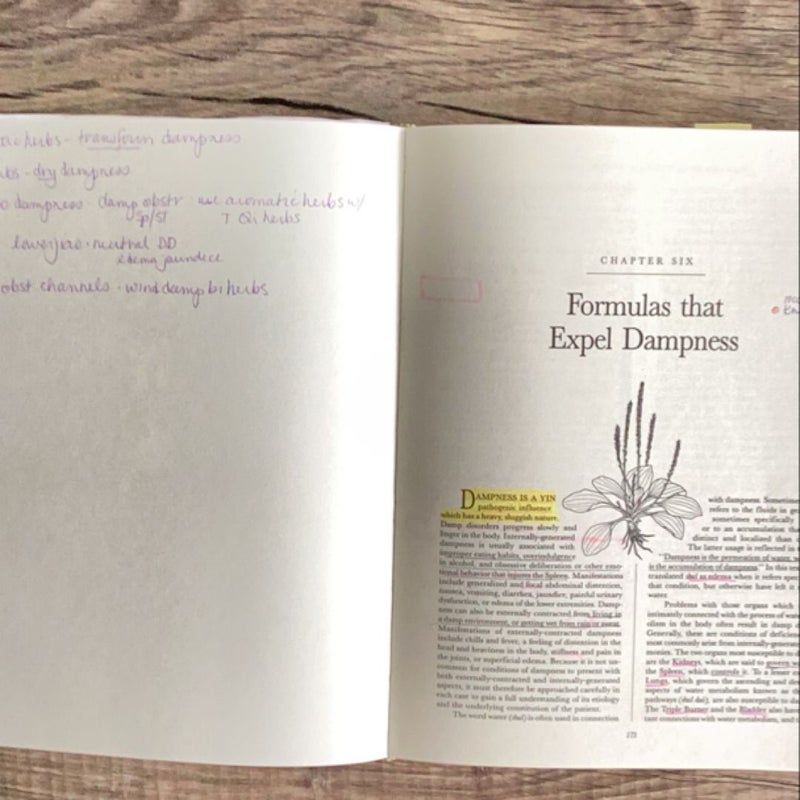 herbs - transform dampness
dry dampness
dampness - damp obstr aromatic herbs w/
Sp/ST T Qi herbs
lower jiao - neutral DD
edema jaundice
obst channels - wind damp bi herbs
CHAPTER SIX
Formulas that
Expel Dampness
DAMPNESS IS A YIN
pathogenic influence
which has a heavy, sluggish nature.
Damp disorders progress slowly and
linger in the body. Internally-generated
dampness is usually associated with
improper eating habits, overindulgence
in alcohol, and obsessive deliberation or other emo-
tional behavior that injures the Spleen. Manifestations
include generalized and focal abdominal distention,
nausea, vomiting, diarrhea, jaundice, painful urinary
dysfunction, or edema of the lower extremities. Damp-
ness can also be externally contracted from living in
a damp environment, or getting wet from rain or sweat.
Manifestations of externally-contracted dampness
include chills and fever, a feeling of distention in the
head and heaviness in the body, stiffness and pain in
the joints, or superficial edema. Because it is not un-
common for conditions of dampness to present with
both externally-contracted and internally-generated
aspects, it must therefore be approached carefully in
each case to gain a full understanding of its etiology
and the underlying constitution of the patient.
The word water (shui) is often used in connection
with dampness. Sometimes
refers to the fluids in
sometimes specifically
or to an accumulation
distinct and localized than
The latter usage is reflected in
"Dampness is the permeation of water,
is the accumulation of dampness." In this
translated shui as edema when it refers
that condition, but otherwise have left it
water.
Problems with those organs which
intimately connected with the process of
olism in the body often result in damp
Generally, these are conditions of
most commonly arise from internally-
monies. The two organs most susceptible to
are the Kidneys, which are said to govern
the Spleen, which controls it. To a lesser
Lungs, which govern the ascending and
aspects of water metabolism known as
pathways (shui dao), are also susceptible to
The Triple Burner and the Bladder also have
tant connections with water metabolism, and
173